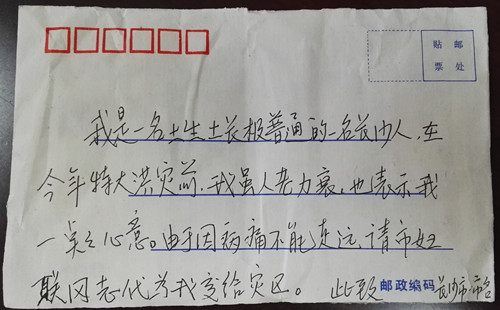 贴 邮
票 处
我是一名土生土长极普通的一名长沙人,在
今年特大洪灾前,我虽人老力衰,也表示我
一点之心意。由于因病痛不能走远,请市妇
联同志代为我交给灾区。 此致 邮政编码 长沙市